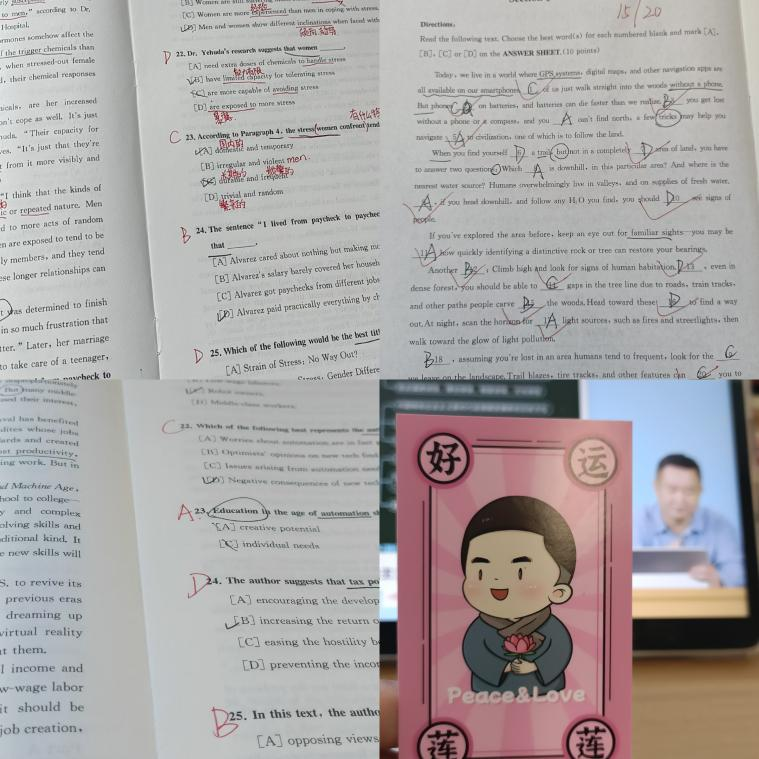 to men," according to Dr.
Hospital.
ormones somehow affect the
f the trigger chemicals than
, when stressed-out female
d, their chemical responses
micals, are her increased
on't cope as well. It's just
"Their capacity for
ves. "It's just that they're
t from it more visibly and
"I think that the kinds of
ic or repeated nature. Men
d to more acts of random
en are exposed to tend to be
ly members, and they tend
ese longer relationships can
t was determined to finish
in so much frustration that
tter." Later, her marriage
to take care of a teenager,
paycheck to
[C] Women are more experienced than men in coping with stress.
[D] Men and women show different inclinations when faced with
D 22. Dr. Yehuda's research suggests that women
[A] need extra doses of chemicals to handle stress
[B] have limited capacity for tolerating stress
[C] are more capable of avoiding stress
[D] are exposed to more stress
暴露
C 23. According to Paragraph 4, the stress women confront tend
国内的
[A] domestic and temporary
[B] irregular and violent men.
长期的 频繁的
[C] durable and frequent
[D] trivial and random
B 24. The sentence "I lived from paycheck to paychec
that
[A] Alvarez cared about nothing but making mo
[B] Alvarez's salary barely covered her househ
[C] Alvarez got paychecks from different jobs
[D] Alvarez paid practically everything by ch
D 25. Which of the following would be the best titl
[A] Strain of Stress: No Way Out?
Stress, Gender Differe
15/20
Directions,
Read the following text. Choose the best word(s) for each numbered blank and mark [A],
[B], [C] or [D] on the ANSWER SHEET. (10 points)
Today, we live in a world where GPS systems, digital maps, and other navigation apps are
all available on our smartphones. C of us just walk straight into the woods without a phone.
But phones on batteries, and batteries can die faster than we realize. B you get lost
without a phone or a compass, and you A can't find north, a few tricks may help you
navigate 5A to civilization, one of which is to follow the land.
When you find yourself a trail, but not in a completely D area of land, you have
to answer two questions: Which A is downhill, in this particular area? And where is the
nearest water source? Humans overwhelmingly live in valleys, and on supplies of fresh water.
A, if you head downhill, and follow any H₂O you find, you should D10 see signs of
people.
If you've explored the area before, keep an eye out for familiar sights—you may be
11A how quickly identifying a distinctive rock or tree can restore your bearings.
Another B. Climb high and look for signs of human habitation. D13, even in
dense forest, you should be able to gaps in the tree line due to roads, train tracks,
and other paths people carve B the woods. Head toward these D to find a way
out. At night, scan the horizon for A light sources, such as fires and streetlights, then
walk toward the glow of light pollution.
B18, assuming you're lost in an area humans tend to frequent, look for the C
we leave on the landscape. Trail blazes, tire tracks, and other features can you to
But many middle-
osed their interest,
val has benefited
dites whose jobs
ards and created
ost productivity,
ing work. But in
nd Machine Age,
hool to college—
y and complex
olving skills and
ditional kind. It
e new skills will
S, to revive its
previous eras
dreaming up
virtual reality
at them.
l income and
w-wage labor
it should be
job creation,
C 22. Which of the following best represents the aut
[A] Worries about automation are in fact
[B] Optimists' opinions on new tech find
[C] Issues arising from automation need
[D] Negative consequences of new tech
A 23. Education in the age of automation sh
[A] creative potential
[C] individual needs
D 24. The author suggests that tax po
[A] encouraging the develop
[B] increasing the return o
[C] easing the hostility b
[D] preventing the inco
B 25. In this text, the autho
[A] opposing views
好 运
Peace&Love
莲 莲